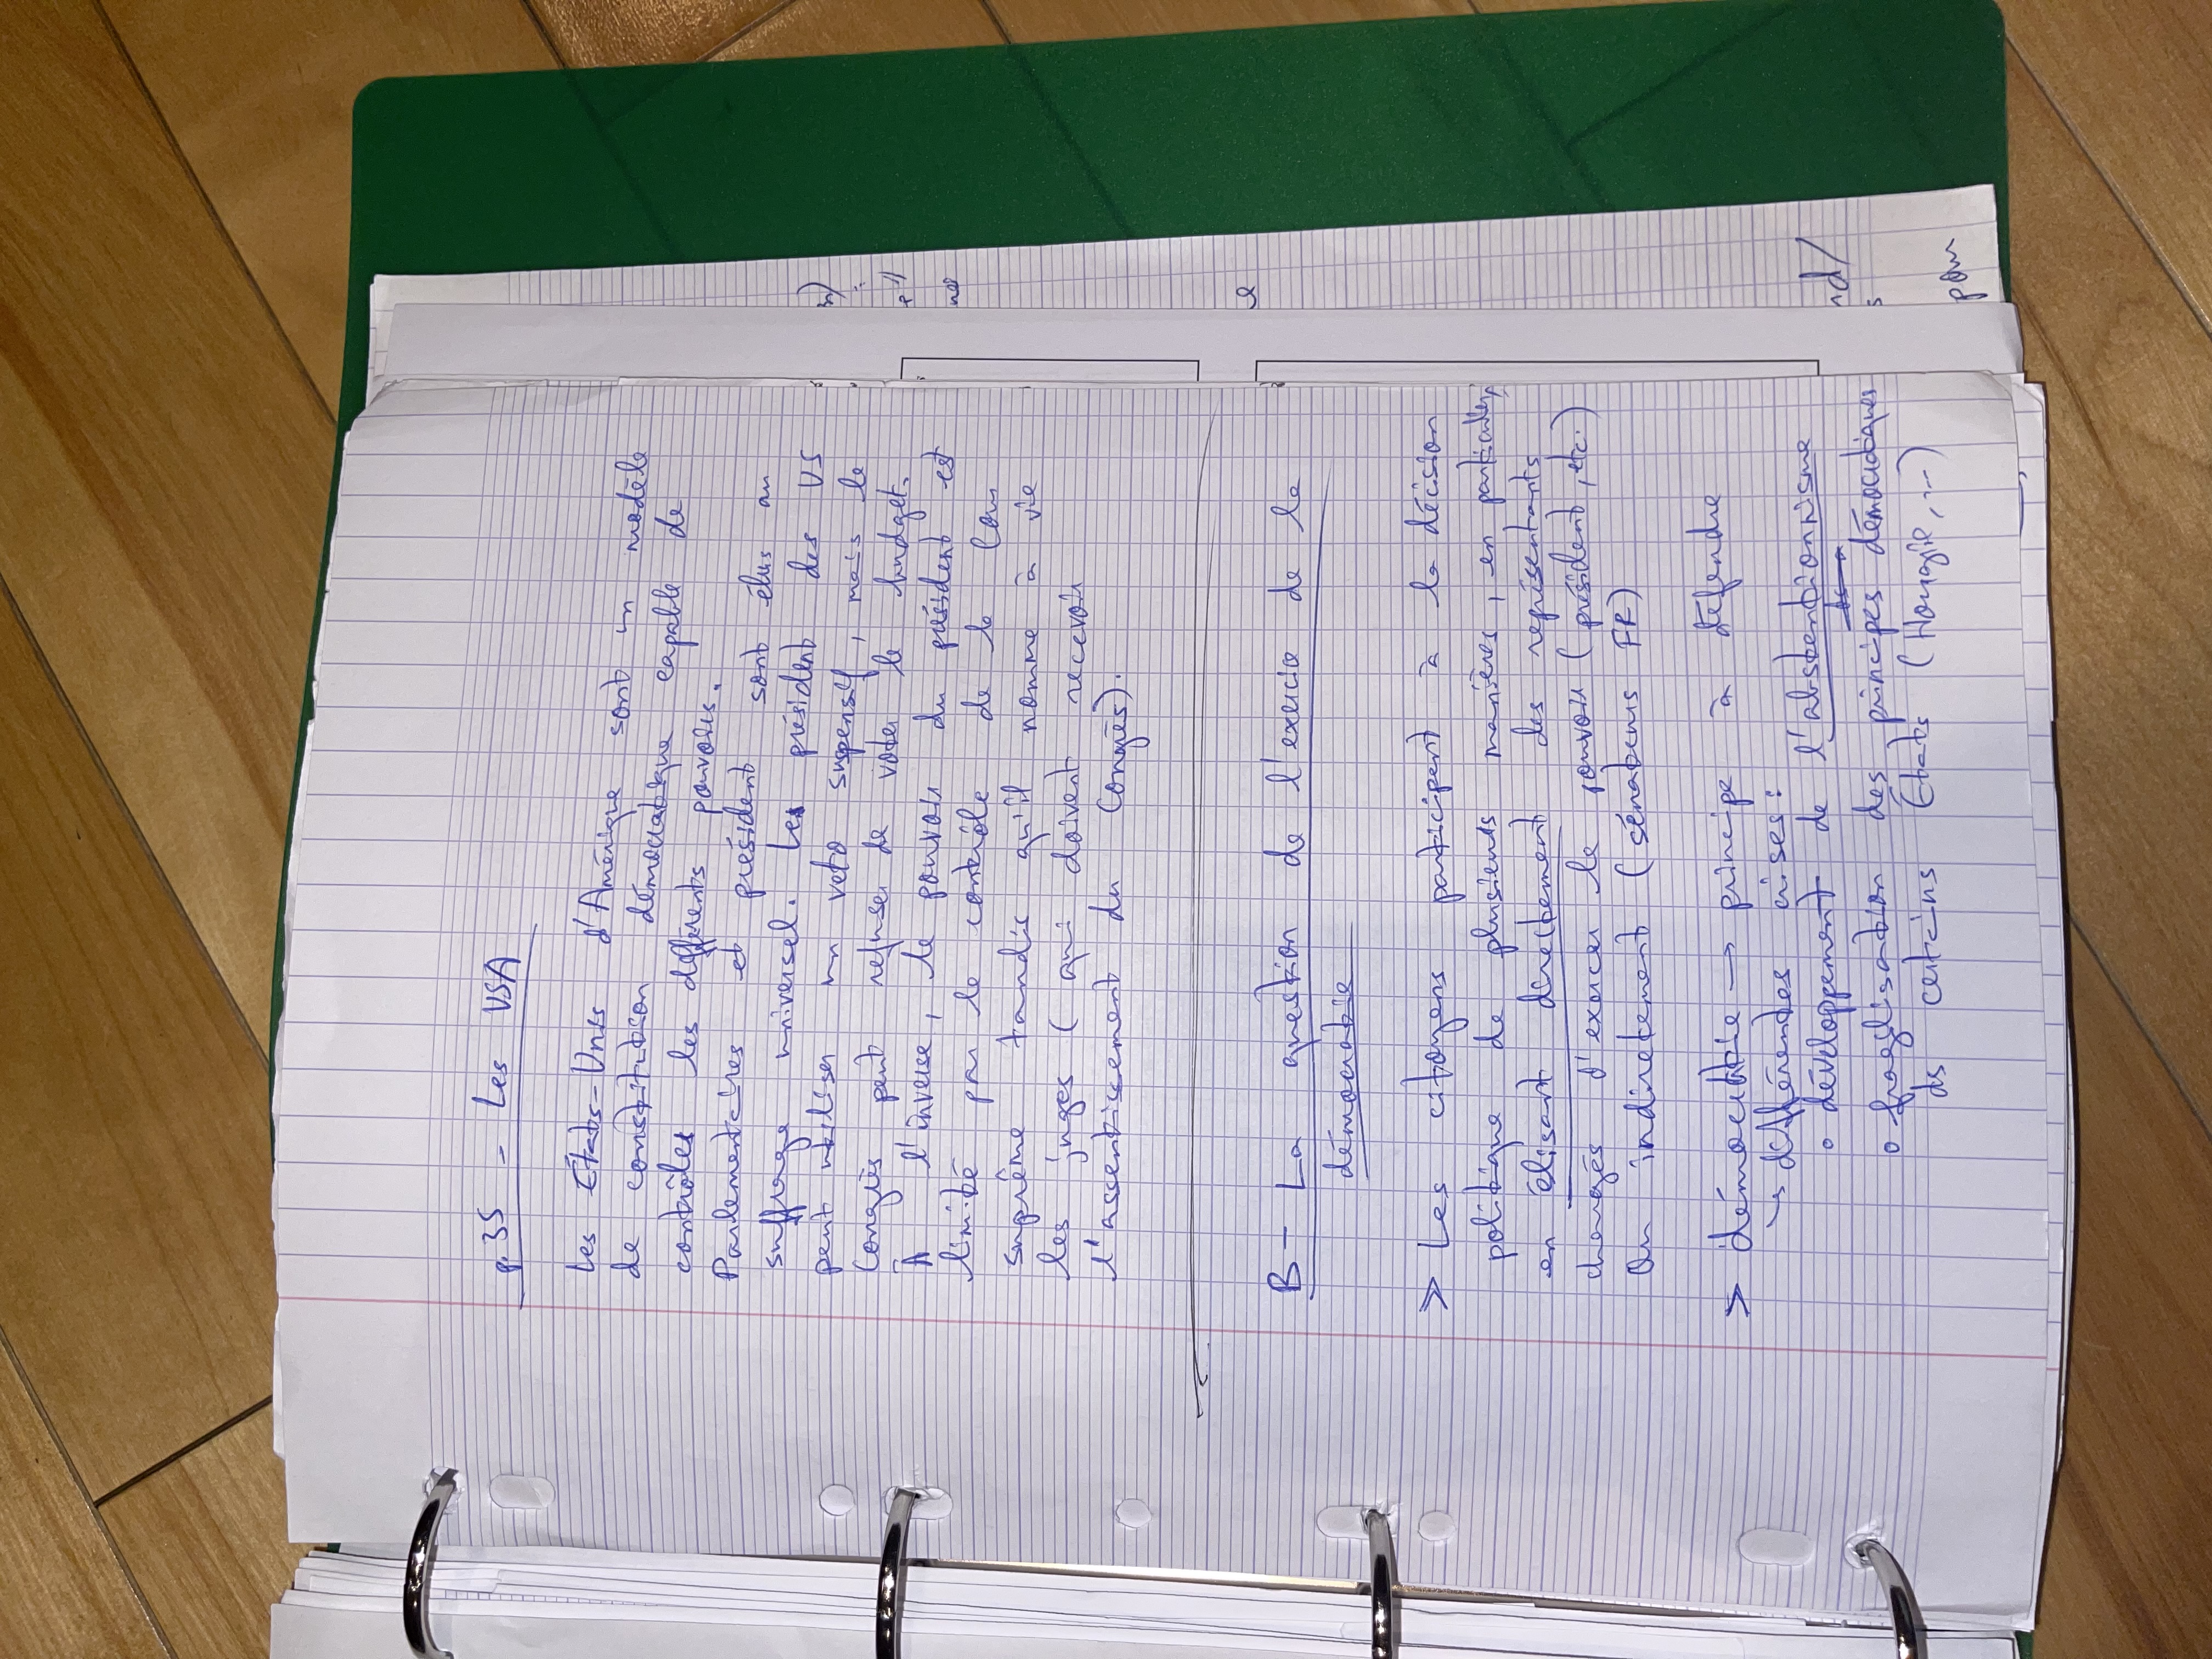 p.35 - Les USA
Les États-Unis d'Amérique sont un modèle
de constitution démocratique capable de
contrôler les différents pouvoirs.
Parlementaires et président sont élus au
suffrage universel. Le président des US
peut utiliser un veto suspensif, mais le
Congrès peut refuser de voter le budget.
À l'inverse, le pouvoir du président est
limité par le contrôle de la Cour
Suprême tandis qu'il nomme à vie
les juges (qui doivent recevoir
l'assentissement du Congrès).
B - La question de l'exercice de la
démocratie
> Les citoyens participent à la décision
politique de plusieurs manières, en particulier,
en élisant directement des représentants
chargés d'exercer le pouvoir (président, etc.)
Ou indirectement (sénateurs FR)
> démocratie → principe à défendre
→ différentes crises:
o développement de l'abstentionnisme
o fragilisation des principes démocratiques
ds certains États (Hongrie, ...)